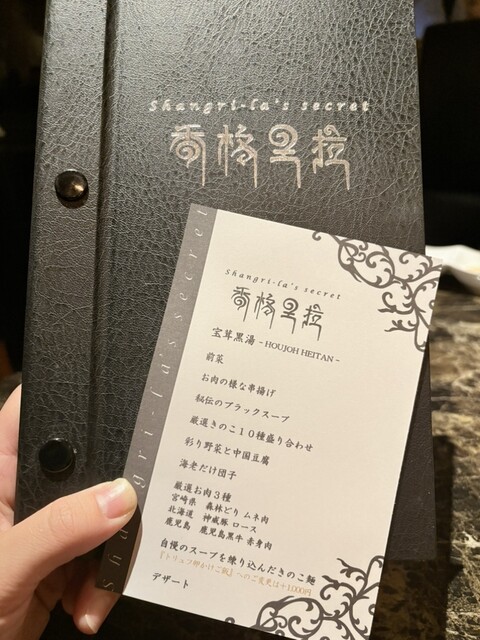 Shangri-la's secret
香格里拉
Shangri-la's secret
香格里拉
宝茸黒湯 - HOUJOH HEITAN -
前菜
お肉の様な串揚げ
秘伝のブラックスープ
厳選きのこ10種盛り合わせ
彩り野菜と中国豆腐
海老だけ団子
厳選お肉3種
宮崎県 森林どり ムネ肉
北海道 神威豚 ロース
鹿児島 鹿児島黒牛 赤身肉
自慢のスープを練り込んだきのこ麺
『トリュフ卵かけご飯』へのご変更は+1,000円
デザート
gri-la's secret